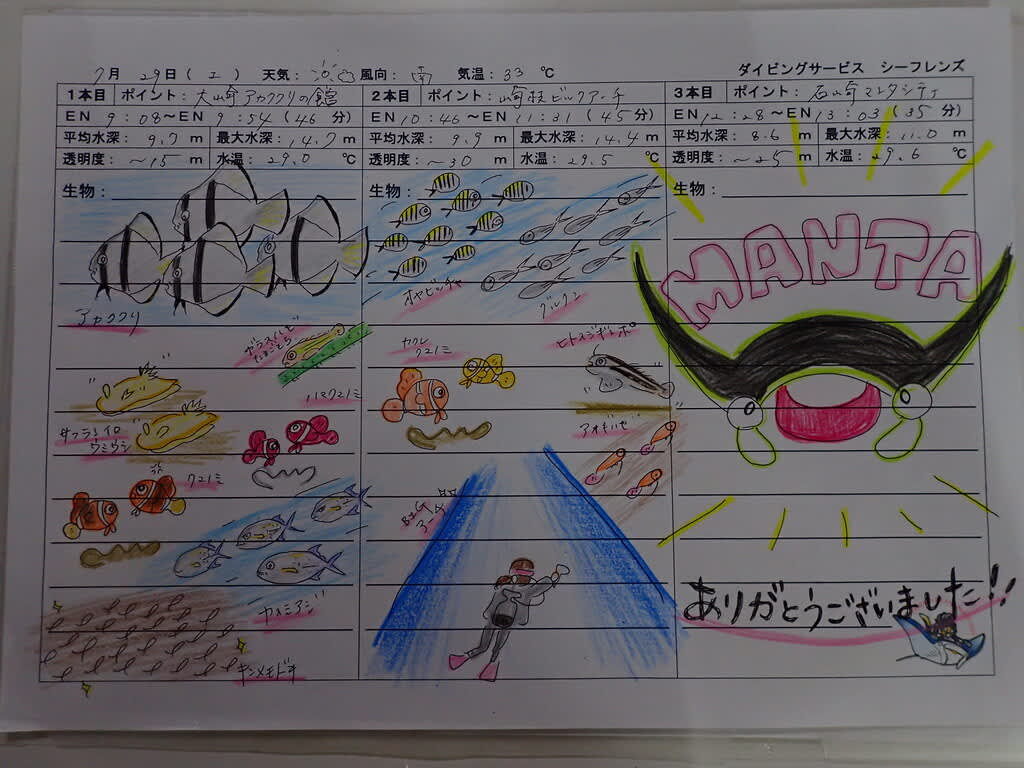 7月 29日(土) 天気: 風向: 南 気温: 33 ℃
ダイビングサービス シーフレンズ
1本目 ポイント: 大崎アカククリの館
EN 9:08〜EN 9:54(46 分)
平均水深: 9.7 m 最大水深: 14.7 m
透明度: 〜15 m 水温: 29.0 ℃
生物:
アカククリ
ガラスハゼと
たまごたち
サフランイロ
ウミウシ
ハマクマノミ
クマノミ
カスミアジ
キンメモドキ
2本目 ポイント: 崎枝ビックアーチ
EN 10:46〜EN 11:31(45 分)
平均水深: 9.9 m 最大水深: 14.4 m
透明度: 〜30 m 水温: 29.5 ℃
生物:
オヤビッチャ
グルクン
カクレ
クマノミ
ヒトスジギンポ
アオギハゼ
BIG
アーチ
3本目 ポイント: 石崎マンタシティ
EN 12:28〜EN 13:03(35 分)
平均水深: 8.6 m 最大水深: 11.0 m
透明度: 〜25 m 水温: 29.6 ℃
生物:
MANTA
ありがとうございました!!